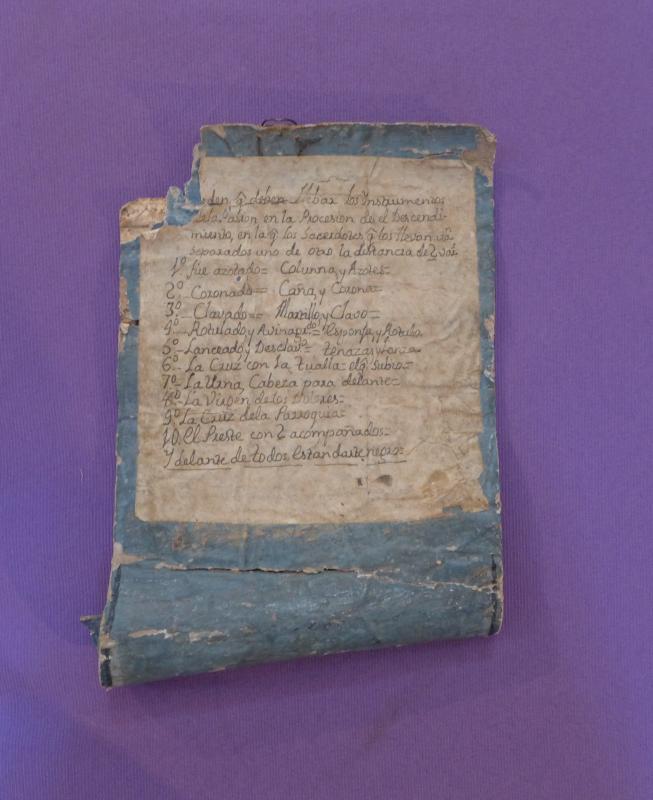 den, q̃ deben llebar los Instrumentos
Pasion, en la Procesion de el Descendi-
miento, en la q̃ los Sacerdotes q̃ los llevan, van
separados uno de otro la distancia de 2 var
1º fue azotado= Colunna y Azotes=
2º.. Coronado== Caña, y Corona=
3º.. Clavado== Martillo y Clavo=
4º.. Rotulado y Avinagrdo.= Esponja y Rotulo
5º.. Lanceado y Desclavdo= tenazas y lanza
6º.. La Cruz con la tualla= subio=
7º.. La Urna, Cabeza para delante=
8º.. La Virgen de los Dolores=
9º. La Cruz dela Parroquia=
10. El Preste con 2 acompañados=
Y delante de todos Estandarte negro=